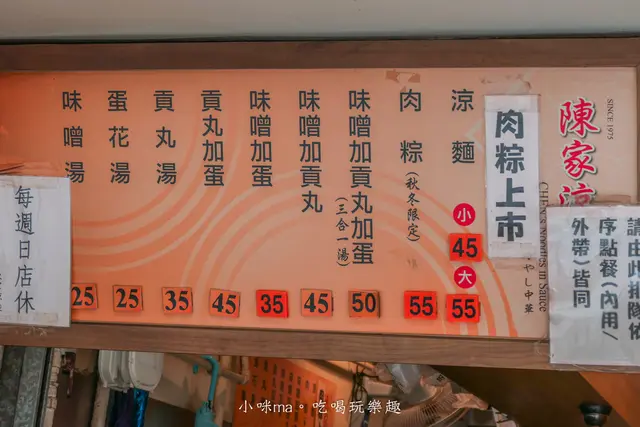 SINCE 1975
陳家涼
CHEN'S NOODLES in Sauce
やし中華
肉粽上市
涼麵
小
45
大
55
肉粽(秋冬限定)
55
味噌加貢丸加蛋(三合一湯)
50
味噌加貢丸
45
味噌加蛋
35
貢丸加蛋
45
貢丸湯
35
蛋花湯
25
味噌湯
25
請由此排隊依
序點餐(內用/
外帶)皆同
每週日店休
小咪ma。吃喝玩樂趣